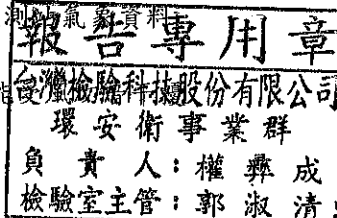 測 氣象資料
報告專用章
台灣檢驗科技股份有限公司
環安衛事業群
負責人：權彝成
檢驗室主管：郭淑清